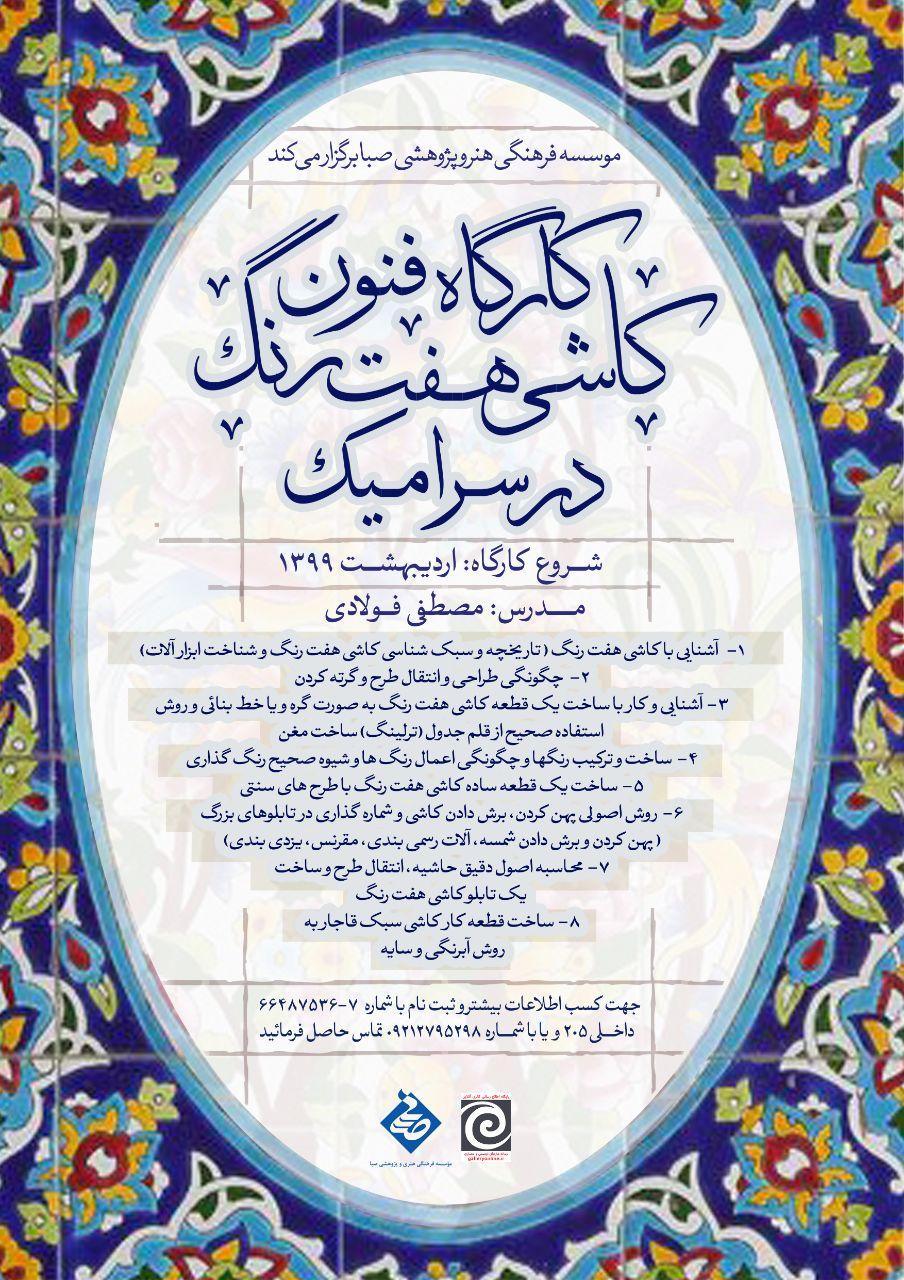 موسسه فرهنگی هنر و پژوهشی صبا برگزار می‌کند
کارگاه فنون
کاشی هفت رنگ
در سرامیک
شروع کارگاه: اردیبهشت ۱۳۹۹
مدرس: مصطفی فولادی
۱- آشنایی با کاشی هفت رنگ ( تاریخچه و سبک شناسی کاشی هفت رنگ و شناخت ابزار آلات)
۲- چگونگی طراحی و انتقال طرح و گرته کردن
۳- آشنایی و کار با ساخت یک قطعه کاشی هفت رنگ به صورت گره و یا خط بنائی و روش
استفاده صحیح از قلم جدول (ترلینگ) ساخت مغن
۴- ساخت و ترکیب رنگها و چگونگی اعمال رنگ ها و شیوه صحیح رنگ گذاری
۵- ساخت یک قطعه ساده کاشی هفت رنگ با طرح های سنتی
۶- روش اصولی پهن کردن، برش دادن کاشی و شماره گذاری در تابلوهای بزرگ
( پهن کردن و برش دادن شمسه، آلات رسمی بندی، مقرنس، یزدی بندی)
۷- محاسبه اصول دقیق حاشیه، انتقال طرح و ساخت
یک تابلو کاشی هفت رنگ
۸- ساخت قطعه کار کاشی سبک قاجار به
روش آبرنگی و سایه
جهت کسب اطلاعات بیشتر و ثبت نام با شماره ۷-۶۶۴۸۷۵۳۶
داخلی ۲۰۵ و یا با شماره ۰۹۲۱۲۷۹۵۲۹۸ تماس حاصل فرمائید
موسسه فرهنگی هنری و پژوهشی صبا